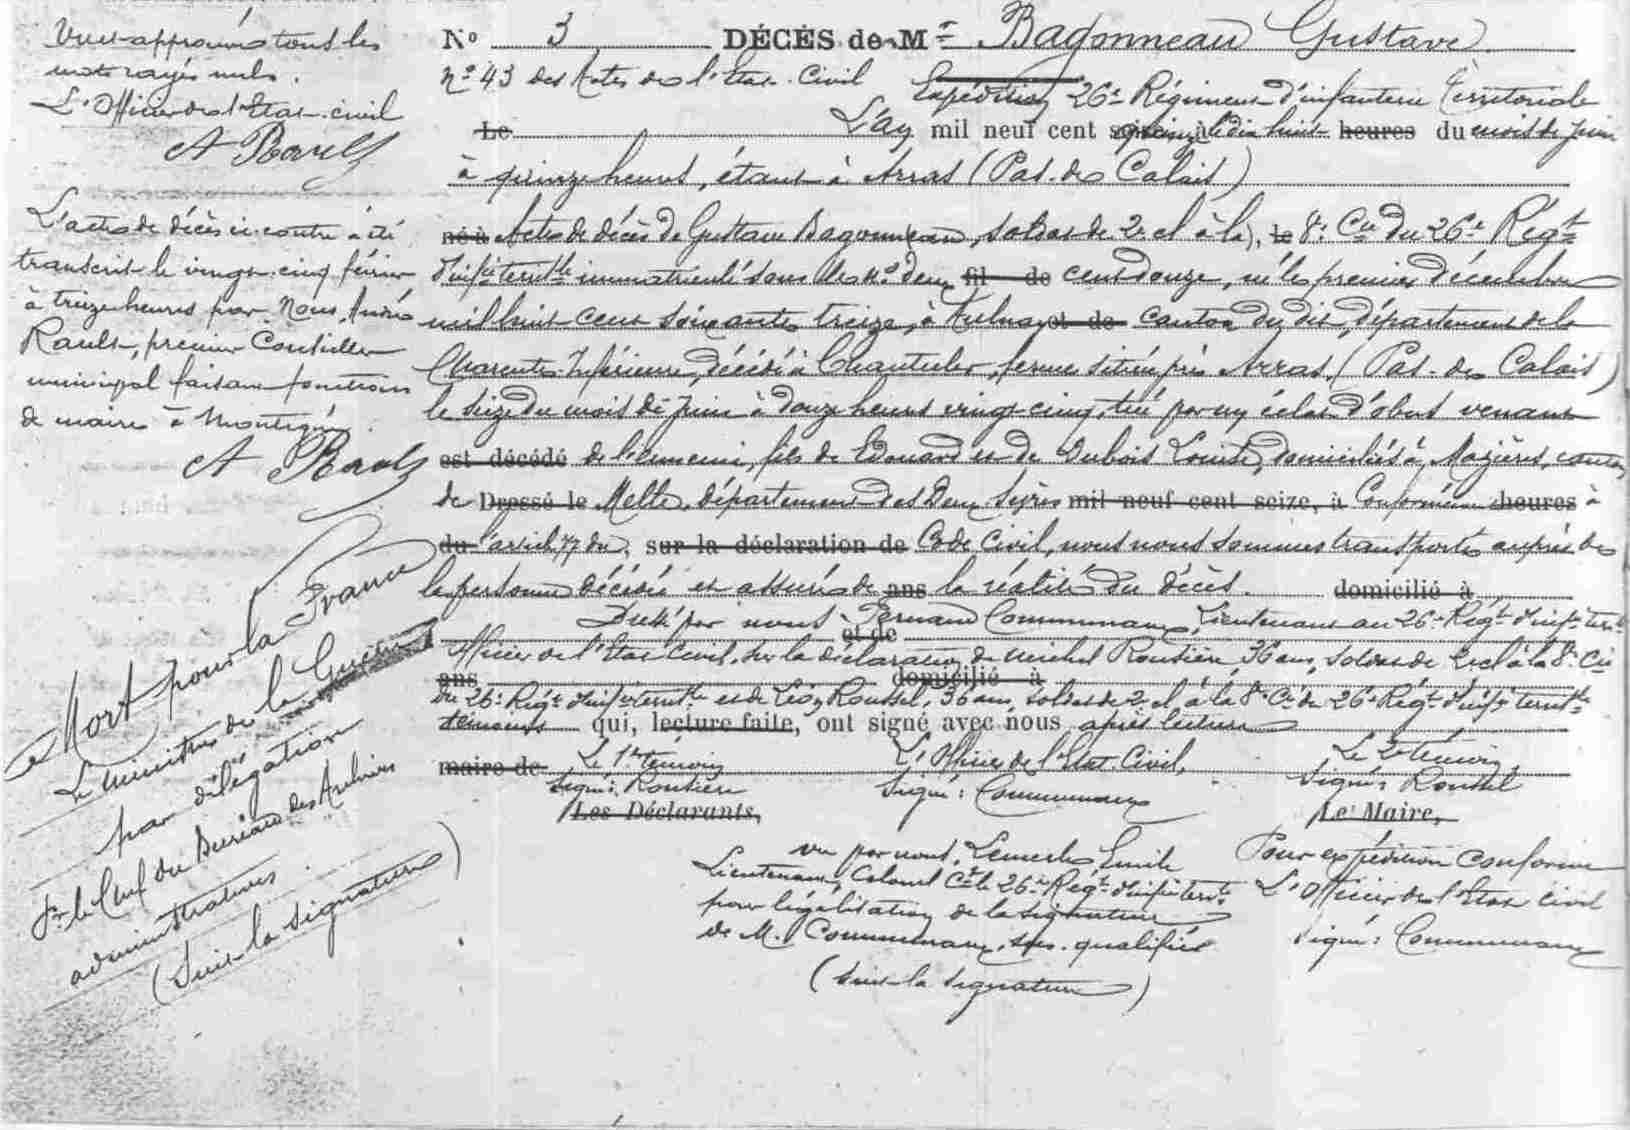 Vu et approuvé tous les
mots rayés nuls.
L'Officier de l'Etat-civil
A Rault
L'acte de décès ci-contre a été
transcrit le vingt-cinq février
à treize heures par Nous, André
Rault, premier Conseiller
municipal faisant fonctions
de maire à Montigné.
A Rault
Mort pour la France
Le ministre de la Guerre
par délégation
Pr le Chef du Bureau des Archives
administratives.
(Suit la signature)
No 3 DÉCÈS de Mr Bagonneau Gustave
No 43 des Actes de l'Etat-Civil Expédition 26e Régiment d'infanterie Territoriale
Le L'an mil neuf cent quinze, le dix huit heures du mois de Juin
à quinze heures, étant à Arras (Pas-de-Calais)
né à Acte de décès de Gustave Bagonneau, soldat de 2e cl à la, le 8e Cie du 26e Régt
d'infie territle immatriculé sous le no deux fil de cent douze, né le premier décembre
mil huit cent soixante treize, à Aulnay et de canton du dit, département de la
Charente Inférieure, décédé à Chantecler, ferme située près Arras, (Pas-de-Calais)
le seize du mois de Juin à douze heures vingt cinq, tué par un éclat d'obus venant
est décédé de l'ennemi, fils de Edouard et de Dubois Louise, domiciliés à Mazières, canton
de Dressé le Melle, département des Deux Sèvres mil neuf cent seize, à Conformément heures à
du l'article 77 du, sur la déclaration de Code Civil, nous nous sommes transporté auprès de
la personne décédée et assuré de ans la réalité du décès. domicilié à
Dressé par nous Fernand Communeau, Lieutenant au 26e Régt d'infie territle
et de
Officier de l'Etat Civil, sur la déclaration de Michel Routière 36 ans, soldat de 2e cl à la 8e Cie
ans domicilié à
du 26e Régt d'infie territle et de Léon Roussel, 36 ans, soldat de 2e cl à la 8e Cie du 26e Régt d'infie territle
témoins qui, lecture faite, ont signé avec nous après lecture
maire de Le 1er témoin L'Officier de l'Etat-Civil, Le 2e témoin,
Signé: Routière Signé: Communeau Signé: Roussel
Les Déclarants, Le Maire,
vu par nous, Lemerle Emile
Lieutenant Colonel Ct le 26e Régt d'infie territle
pour légalisation de la signature
de M. Communeau, sus-qualifié
(Suit la signature)
Pour expédition conforme
L'Officier de l'Etat civil
Signé: Communeau